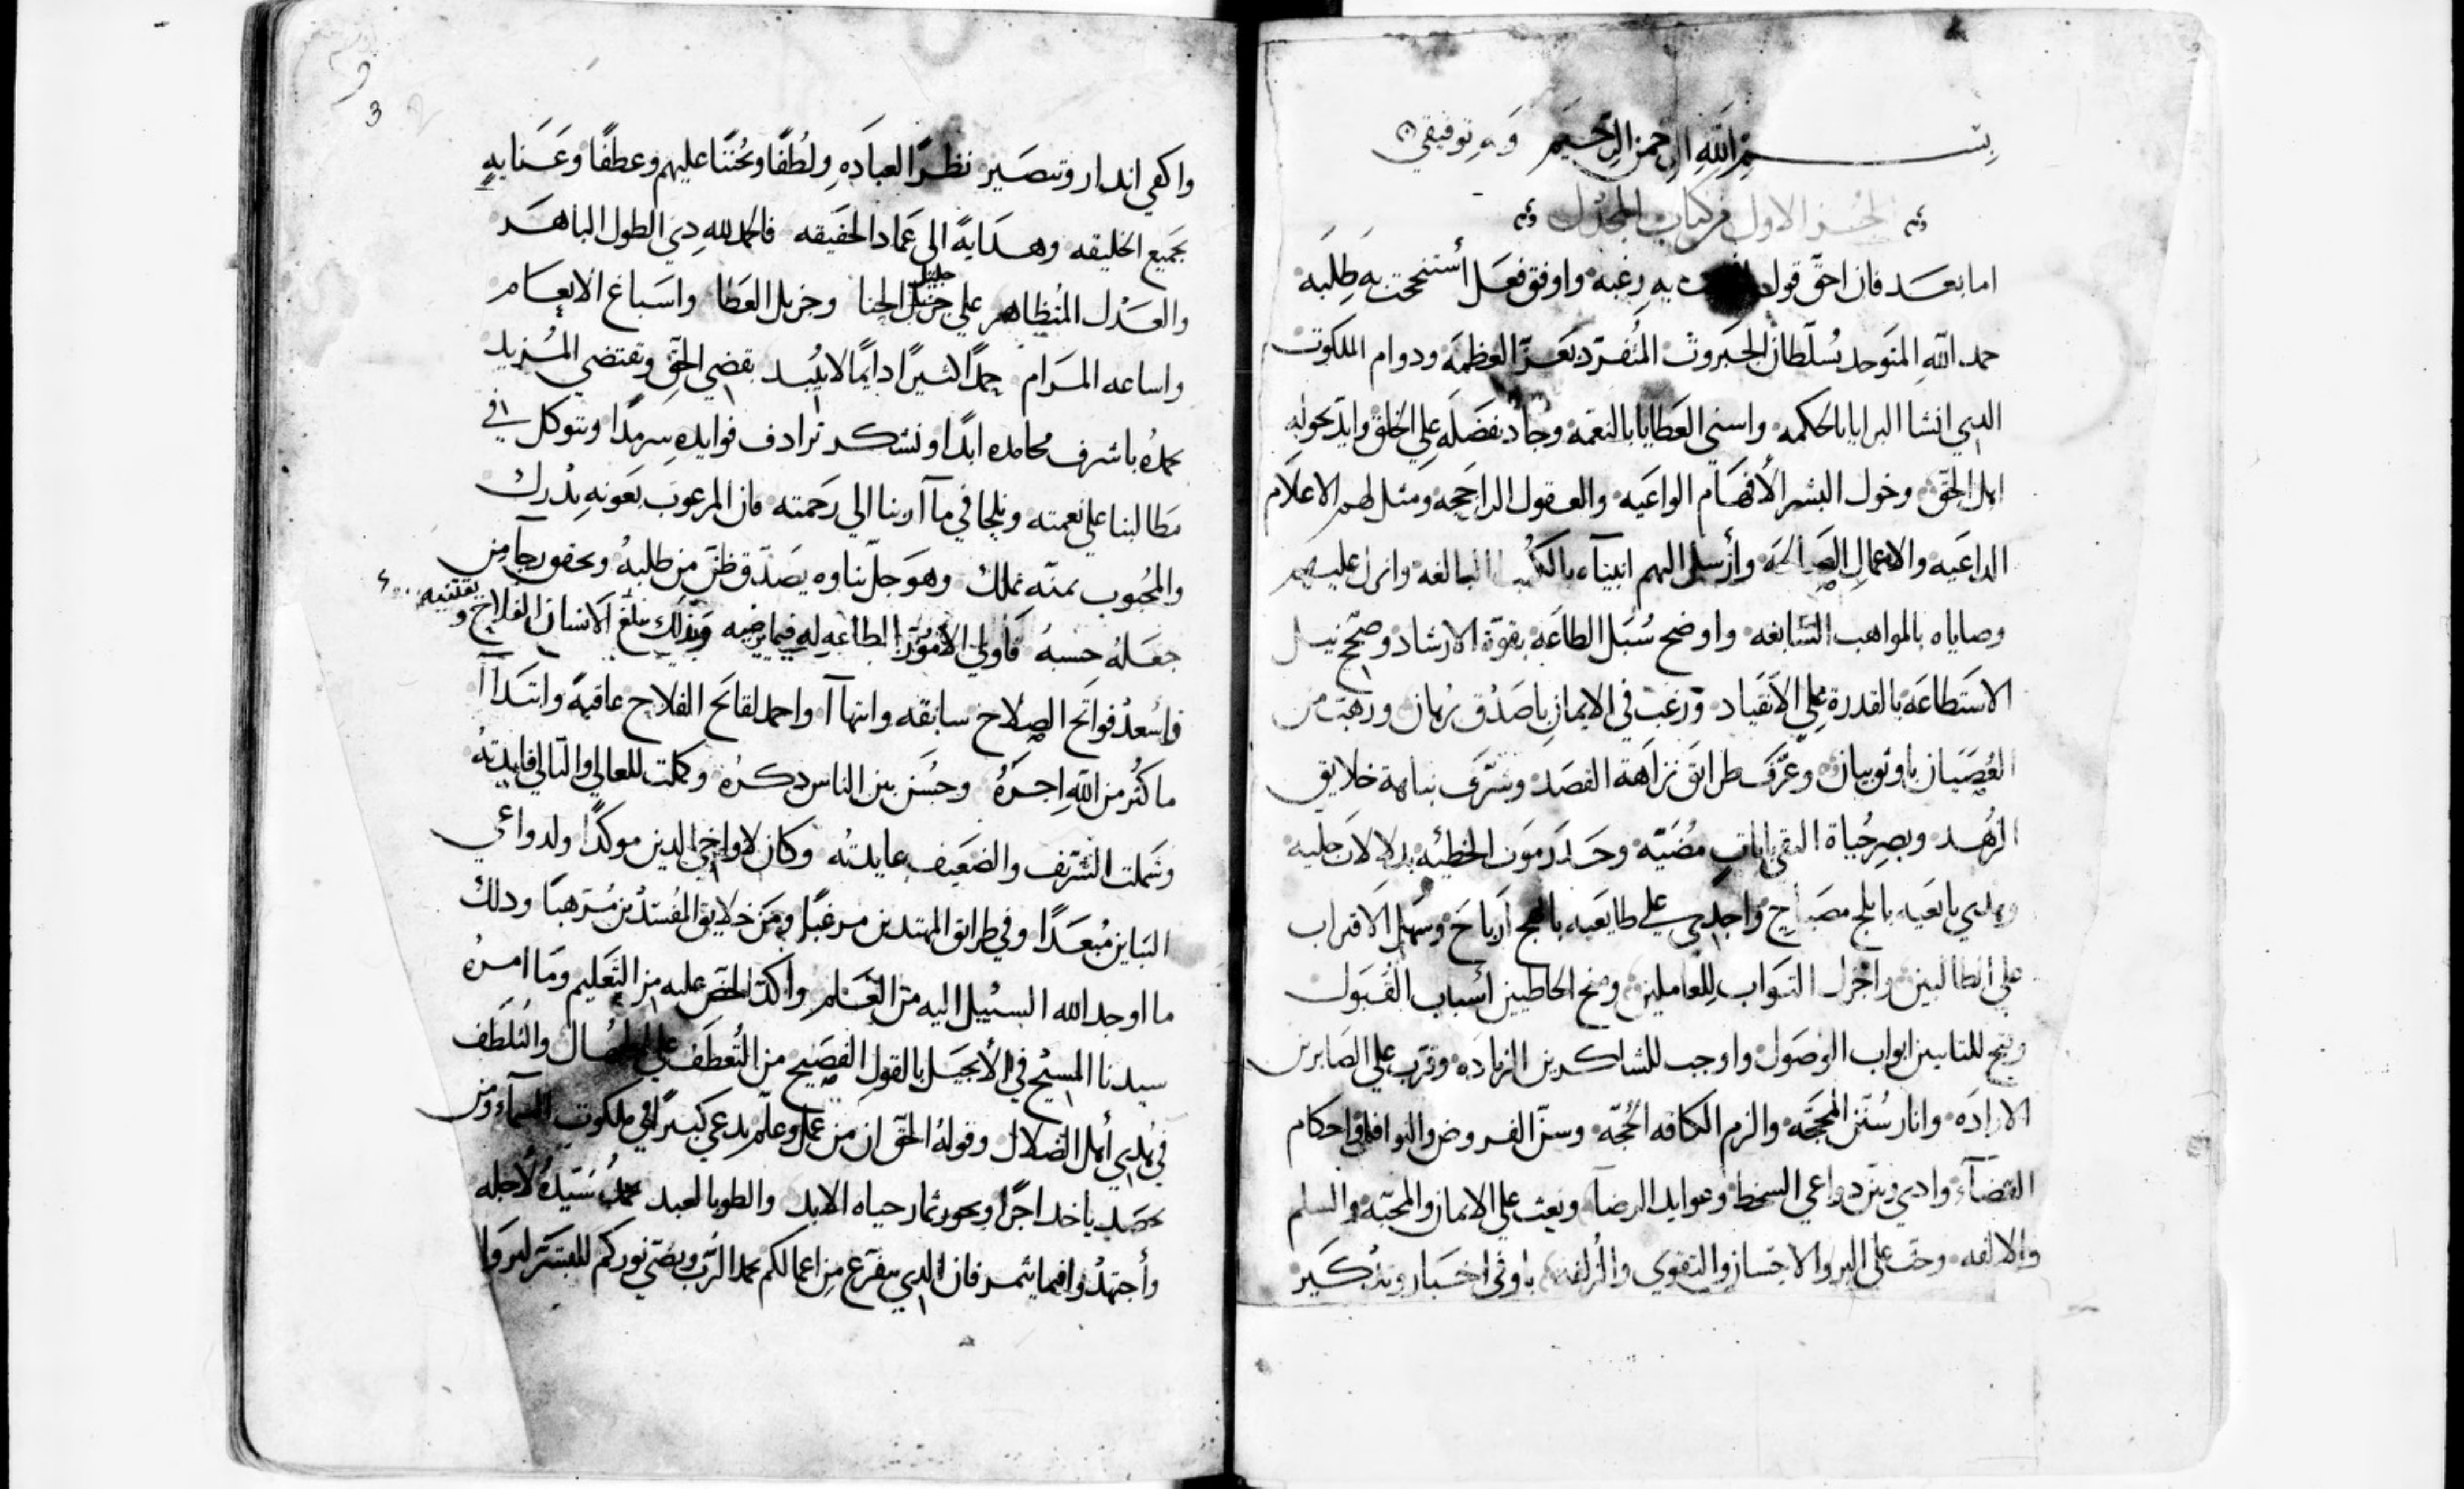 بسم الله الرحمن الرحيم وبه توفيقي
الجزء الاول من كتاب المجدل
اما بعد فان احق قول به رغبه واوفق فعل أستنجحت به طلبه
حمد الله المتوحد بسلطان الجبروت المتفرد بعز العظمه ودوام الملكوت
الدي انشا البرايا بالحكمه واسني العطايا بالنعمه وجاد بفضله علي الخلق وايد بحوله
اهل الحق وخول البشر الأفهام الواعيه والعقول الراجحه ومثل لهم الاعلام
الداعيه والاعمال الصالحه وأرسل اليهم انبيآه بالكتب البالغه وانزل عليهم
وصاياه بالمواهب السابغه واوضح سُبل الطاعه بقوة الارشاد وصحح نيل
الاستطاعه بالقدرة علي الانقياد ورغب في الايمان باصدق برهان ورهب من
العصيان باوثق بيان وعرف طرايق نزاهة القصد وشرف نباهة خلايق
الزهد وبصر حياة التقي باياتٍ مُضيّه وحدد موت الخطيئه بدلالات جليه
وهدي بابلج مصباح واجدي علي طايعيه أرباح وسهل الاقتراب
علي الطالبين واجزل الثواب للعاملين ومنح الخاطيين أسباب القبول
وفتح للتايبين ابواب الوصول واوجب للشاكرين الزياده وقرب علي الصابرين
الاراده وانار سُنن المحجه والزم الكافه الحُجّه وسن الفروض والنوافل في احكام
القضآء دواعي السخط وعوايد الرضآ وبعث علي الايمان والمحبه والسلم
والالفه وحث علي البر والاحسان والتقوي والزلفه باوفي اخبار وتدكير
3
واكفي اندار وتبصير نظرًا لعباده ولطفًا وتحننًا عليهم وعطفًا وعنايه
بجميع الخليقه وهدايةً الي عماد الحقيقه فالحمد لله دي الطول الباهر
والعدل المتظاهر علي جزيل جليل الحبا وجزيل العطا واسباغ الانعام
واساعه المرام حمدًا كثيرًا دايمًا لا يبيد يقضي الحق ويقتضي المزيد
نحمده باشرف محامده ابدًا ونشكر ترادف فوايده سرمدًا ونتوكل في
مطالبنا علي نعمته ونلجا في مآربنا الي رحمته فان المرغوب بعونه يُدرك
والمحبوب بمنه يملك وهو جل ثناوه يصدق ظن من طلبهُ ويحقق رجآ من
جعله حسبهُ فاولي الأمور الطاعه له فيما يرضيه وبذلك يبلغ الانسان الفلاح ويقتنيه
فاسعد فواتح الصلاح سابقه وانتهاآ واحمد لقايح الفلاح عاقبه وابتداآ
ما كثر من الله اجرهُ وحسن بين الناس دكرهُ وكملت للعالي والتالي فايدتهُ
وشملت الشريف والضعيف عايدتُه وكان لاواخي الدين موكدًا ولدواعي
التباين مُبعدًا وفي طرايق المهتدين مرغبًا ومن خلايق المفسدين مُرهبًا ودلك
ما اوجد الله السبيل اليه من العلم واكد الحض عليه من التعليم وما امرهُ
سيدنا المسيح في الأنجيل بالقول الفصيح من التعطف علي والتلطف
في هدي أهل الضلال وقولهُ الحق ان من عمل وعلّم يدعي كبيرًا في ملكوت السمآء ومن
يحصد ياخد اجرًا ويحوز ثمار حياه الابد والطوبا لعبد يحمدُ سيّدهُ لأجله
وأجتهدُوا فيما يثمر فان الدي يتفرع من اعمالكم يحمد الرب ويضي نوركم للبشر ليروا